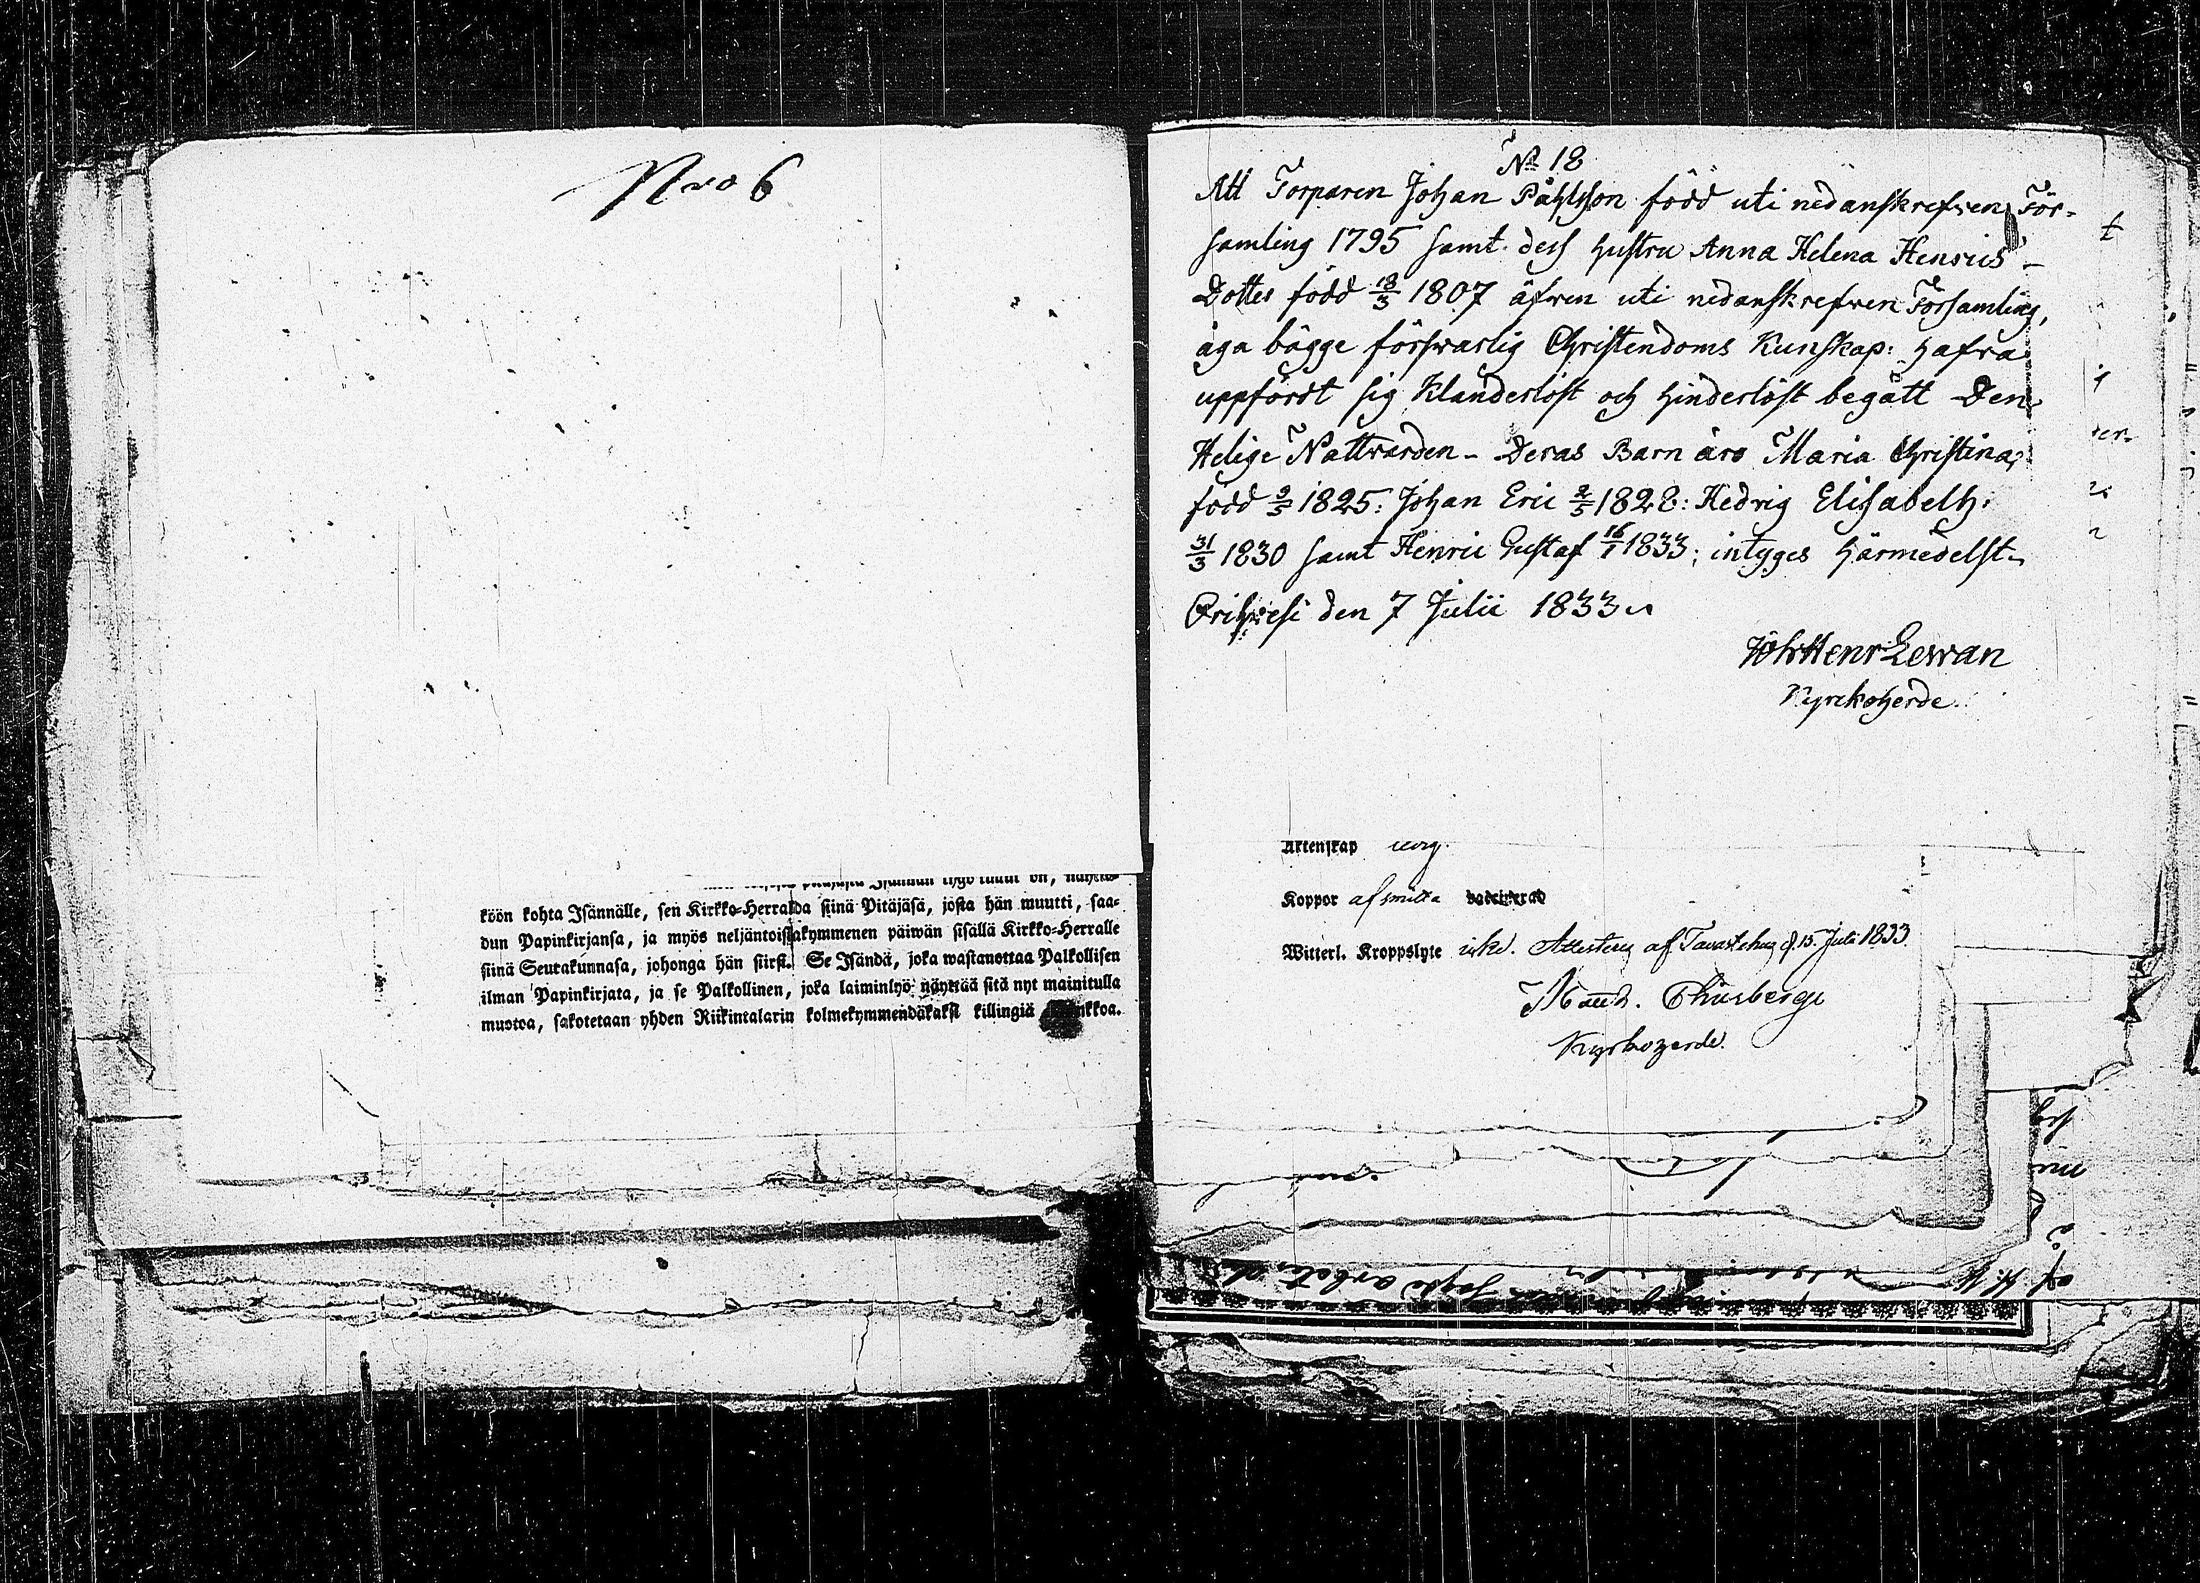 Nro 6
köön kohta Isännälle, sen Kirkko-Herralda siinä Pitäjäsä, josta hän muutti, saa-
dun Papinkirjansa, ja myös neljäntoistakymmenen päiwän sisällä Kirkko-Herralle
siinä Seurakunnasa, johonga hän siirst. Se Isändä, joka wastanottaa Palkollisen
ilman Papinkirjata, ja se Palkollinen, joka laiminlyö näyttää sitä nyt mainitulla
muotoa, sakotetaan yhden Riikintalarin kolmekymmendäkaksi killingiä
No 18
Att Torparen Johan Påhlsson född uti nedanskrefven För-
samling 1795 samt dess hustru Anna Helena Henrics-
Dotter född 18/3 1807 äfven uti nedanskrefven Församling,
äga bägge försvarlig Christendoms Kunskap: hafva
uppfördt sig Klanderlöst och hinderlöst begått Den
Helige Nattvarden - Deras Barn äro Maria Christina,
född 9/5 1825: Johan Eric 2/5 1828: Hedvig Elisabeth:
31/3 1830 samt Henric Gustaf 16/1 1833: intyges härmedelst
Orihvesi den 7 Julii 1833
Joh Henr Levan
Kyrckoherde.
Äktenskap
Koppor af smitta vaccinerad
Witterl. Kroppslyte icke. af Tavastehus d. 15. Julii 1833
Thusberg
Kyrkoherde.